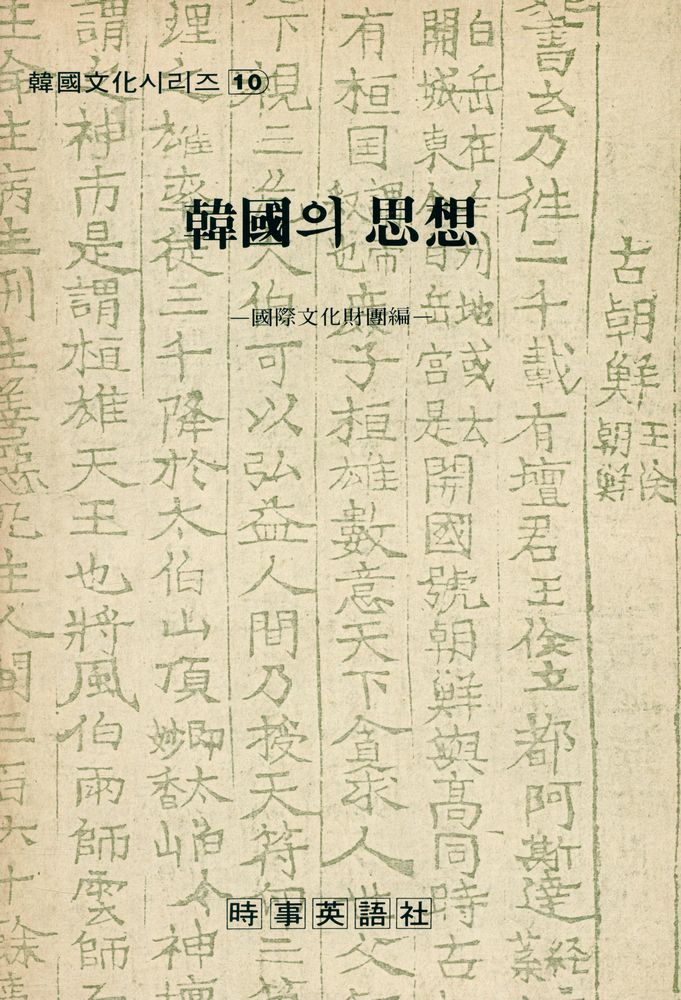 韓國文化시리즈 10
韓國의 思想
—國際文化財團編—
時事英語社
古朝鮮 王倹朝鮮
書云乃往二千載有壇君王倹立都阿斯達 経
白岳在 州地或云
開城東今白岳宮是
開國號朝鮮與高同時古
有桓囯 也庶子桓雄數意天下貪求人世父
下視三危 伯可以弘益人間乃授天符印三箇
理之雄率徒三千降於太伯山頂 即太伯今 妙香山 神壇
謂之神市是謂桓雄天王也將風伯雨師雲師
主命主病主刑主善惡凡主人間三百六十餘事